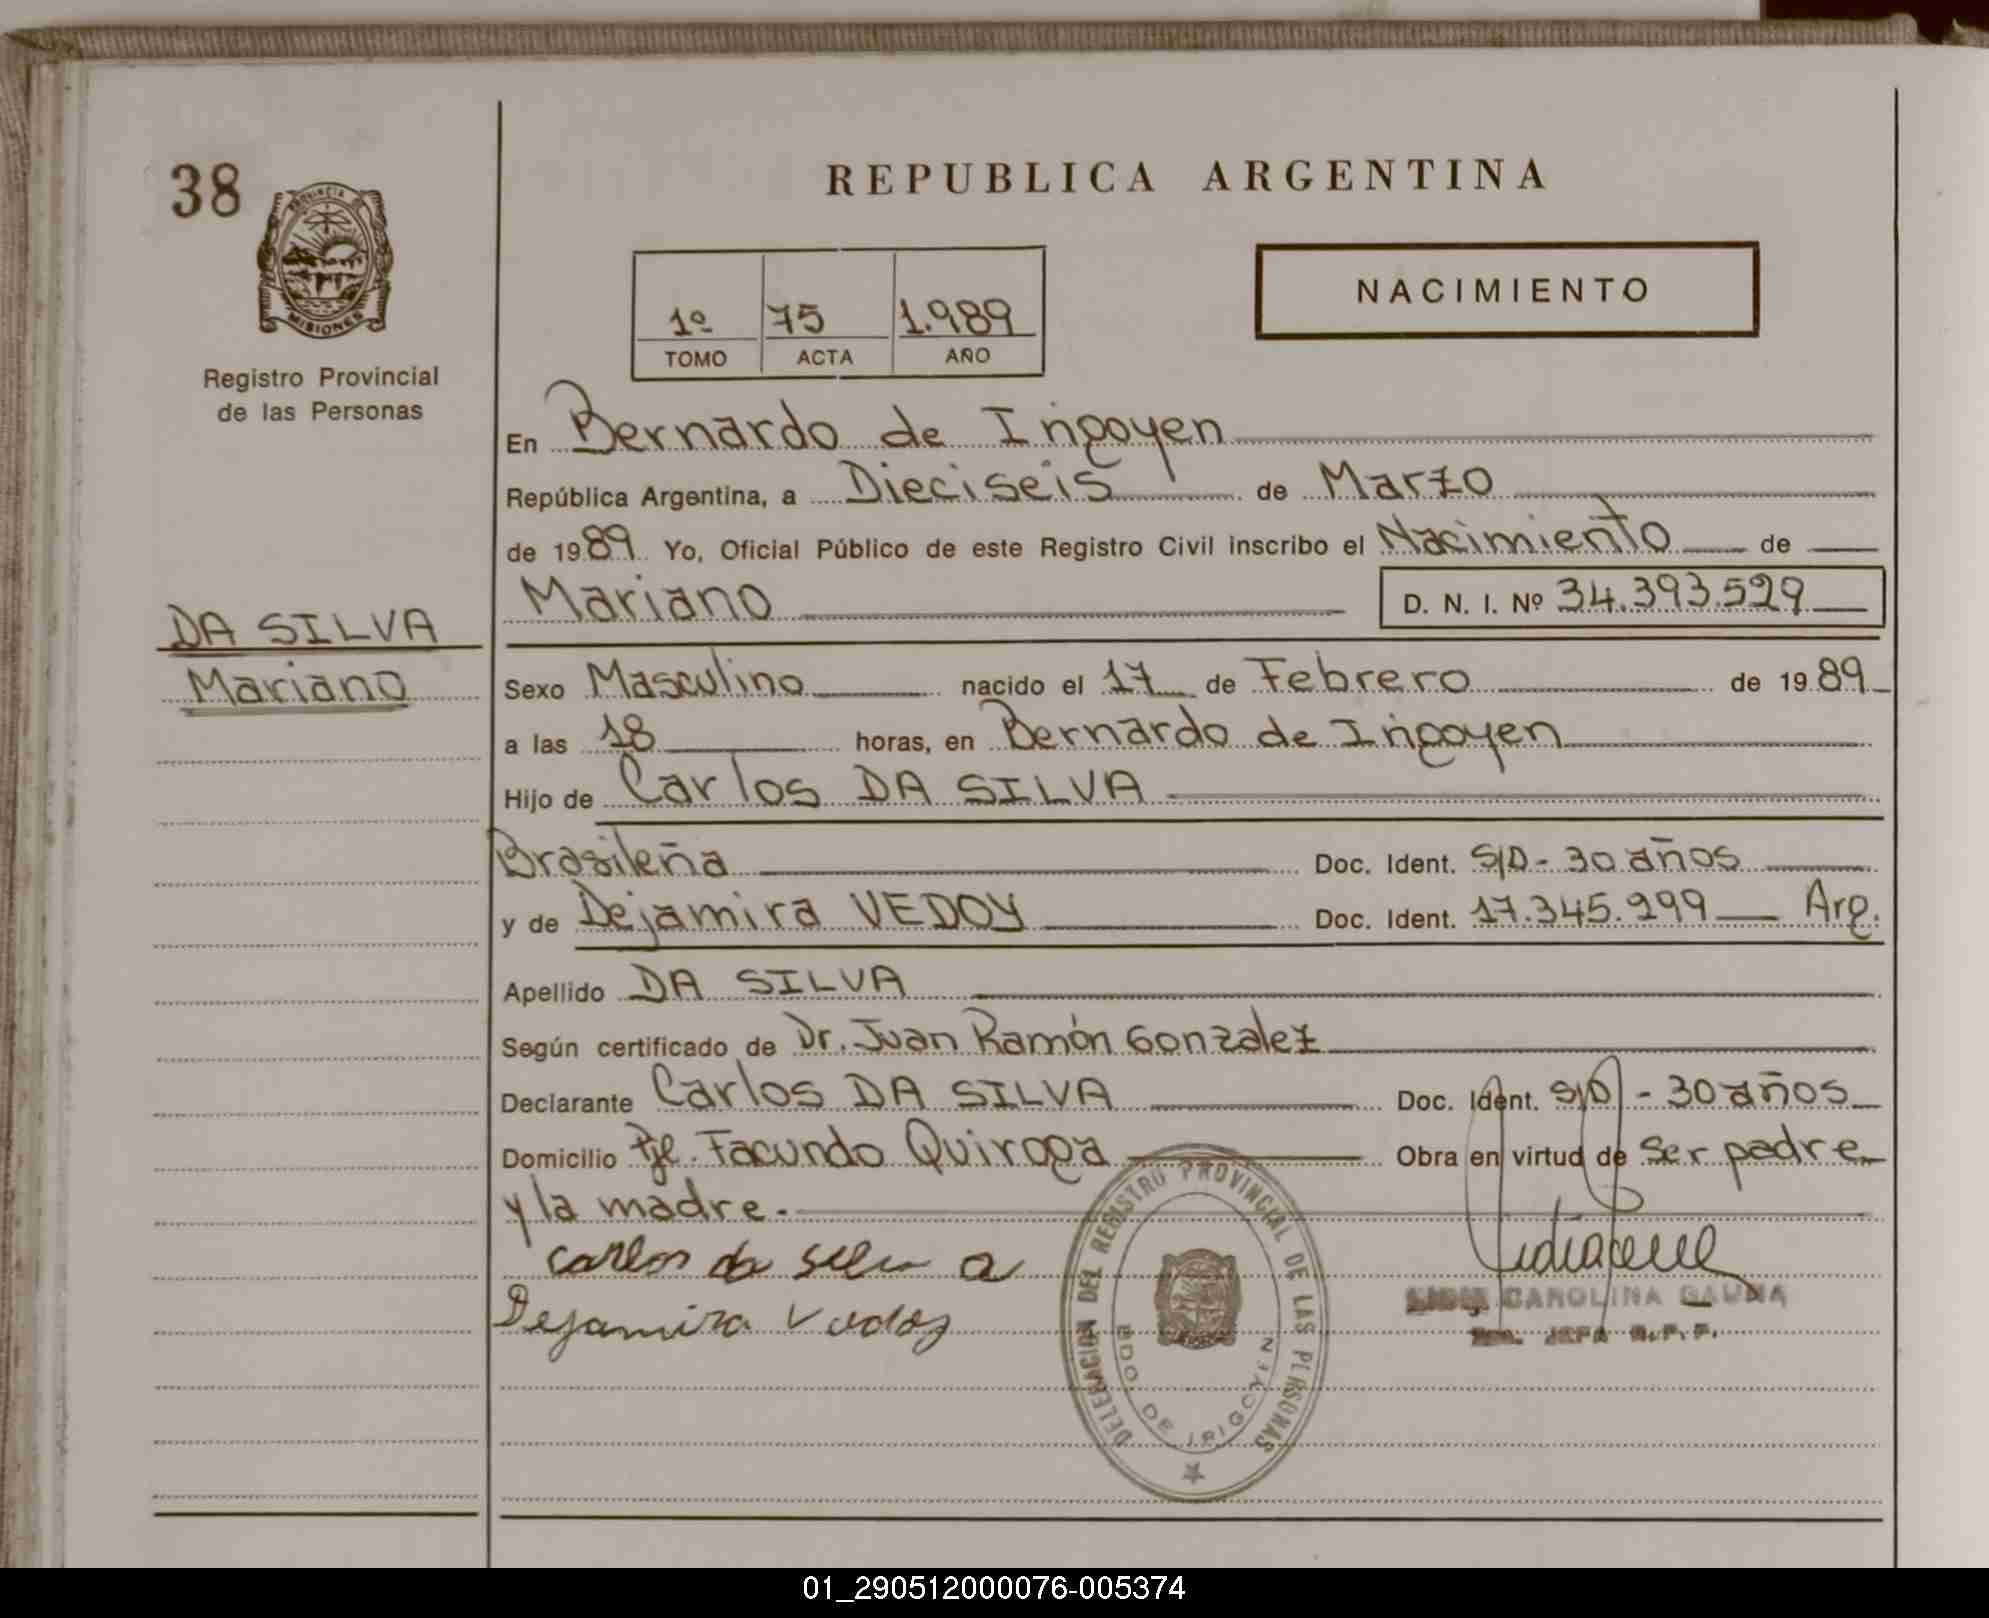 38
PROVINCIA D
MISIONES
Registro Provincial
de las Personas
DA SILVA
Mariano
REPUBLICA ARGENTINA
1º 75 1.989
TOMO ACTA AÑO
NACIMIENTO
En Bernardo de Irigoyen
República Argentina, a Dieciseis de Marzo
de 1989 Yo, Oficial Público de este Registro Civil inscribo el Nacimiento de
Mariano D. N. I. Nº 34.393.529
Sexo Masculino nacido el 17 de Febrero de 1989
a las 18 horas, en Bernardo de Irigoyen
Hijo de Carlos DA SILVA
Brasileña Doc. Ident. S/D - 30 años
y de Dejamira VEDOY Doc. Ident. 17.345.299 Arg.
Apellido DA SILVA
Según certificado de Dr. Juan Ramón Gonzalez
Declarante Carlos DA SILVA Doc. Ident. S/D - 30 años
Domicilio Pje. Facundo Quiroga Obra en virtud de ser padre
y la madre.-
carlos da
Dejamira
CAROLINA GAUNA
JEFA R.P.P.
DELEGACION DEL REGISTRO PROVINCIAL DE LAS PERSONAS
BDO. DE IRIGOYEN
01_290512000076-005374